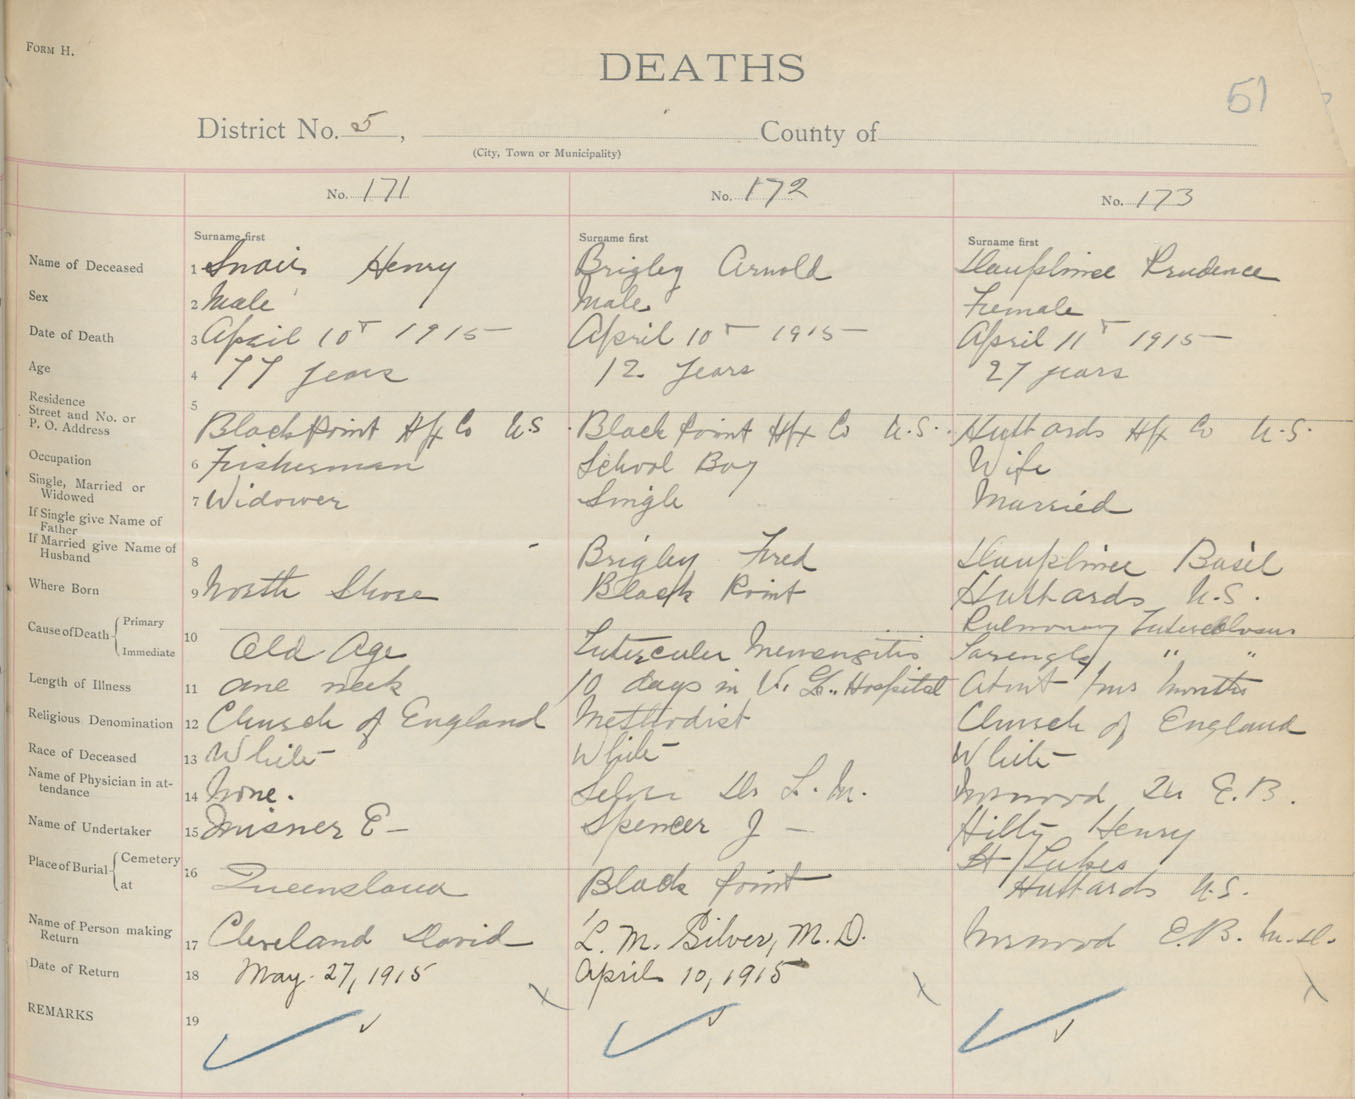 FORM H.
DEATHS
51
District No. 5, County of
(City, Town or Municipality)
No. 171 No. 172 No. 173
Surname first Surname first Surname first
Name of Deceased 1 Snair Henry Brigley Arnold Dauphinee Prudence
Sex 2 Male Male Female
Date of Death 3 April 10" 1915 April 10" 1915 April 11" 1915
Age 4 77 years 12 years 27 years
Residence 5
Street and No. or
P. O. Address Black Point Hfx Co N.S. Black Point Hfx Co N.S. Hubbards Hfx Co N.S.
Occupation 6 Fisherman School Boy Wife
Single, Married or
Widowed 7 Widower Single Married
If Single give Name of
Father
If Married give Name of
Husband 8 Brigley Fred Dauphinee Basil
Where Born 9 North Shore Black Point Hubbards N.S.
Cause of Death Primary 10 Pulmonary Tuberculosus
Immediate Old Age Tubercular Menengitis " "
Length of Illness 11 One week 10 days in V. G. Hospital About months
Religious Denomination 12 Church of England Methodist Church of England
Race of Deceased 13 White White White
Name of Physician in at-
tendance 14 None. Silver Dr L. M. Dr E. B.
Name of Undertaker 15 Misner E - Spencer J - Hilty Henry
Place of Burial Cemetery 16 St Lukes
at Queensland Black Point Hubbards N.S.
Name of Person making
Return 17 Cleveland David L. M. Silver, M. D. E. B. M. D.
Date of Return 18 May 27, 1915 April 10, 1915
REMARKS 19